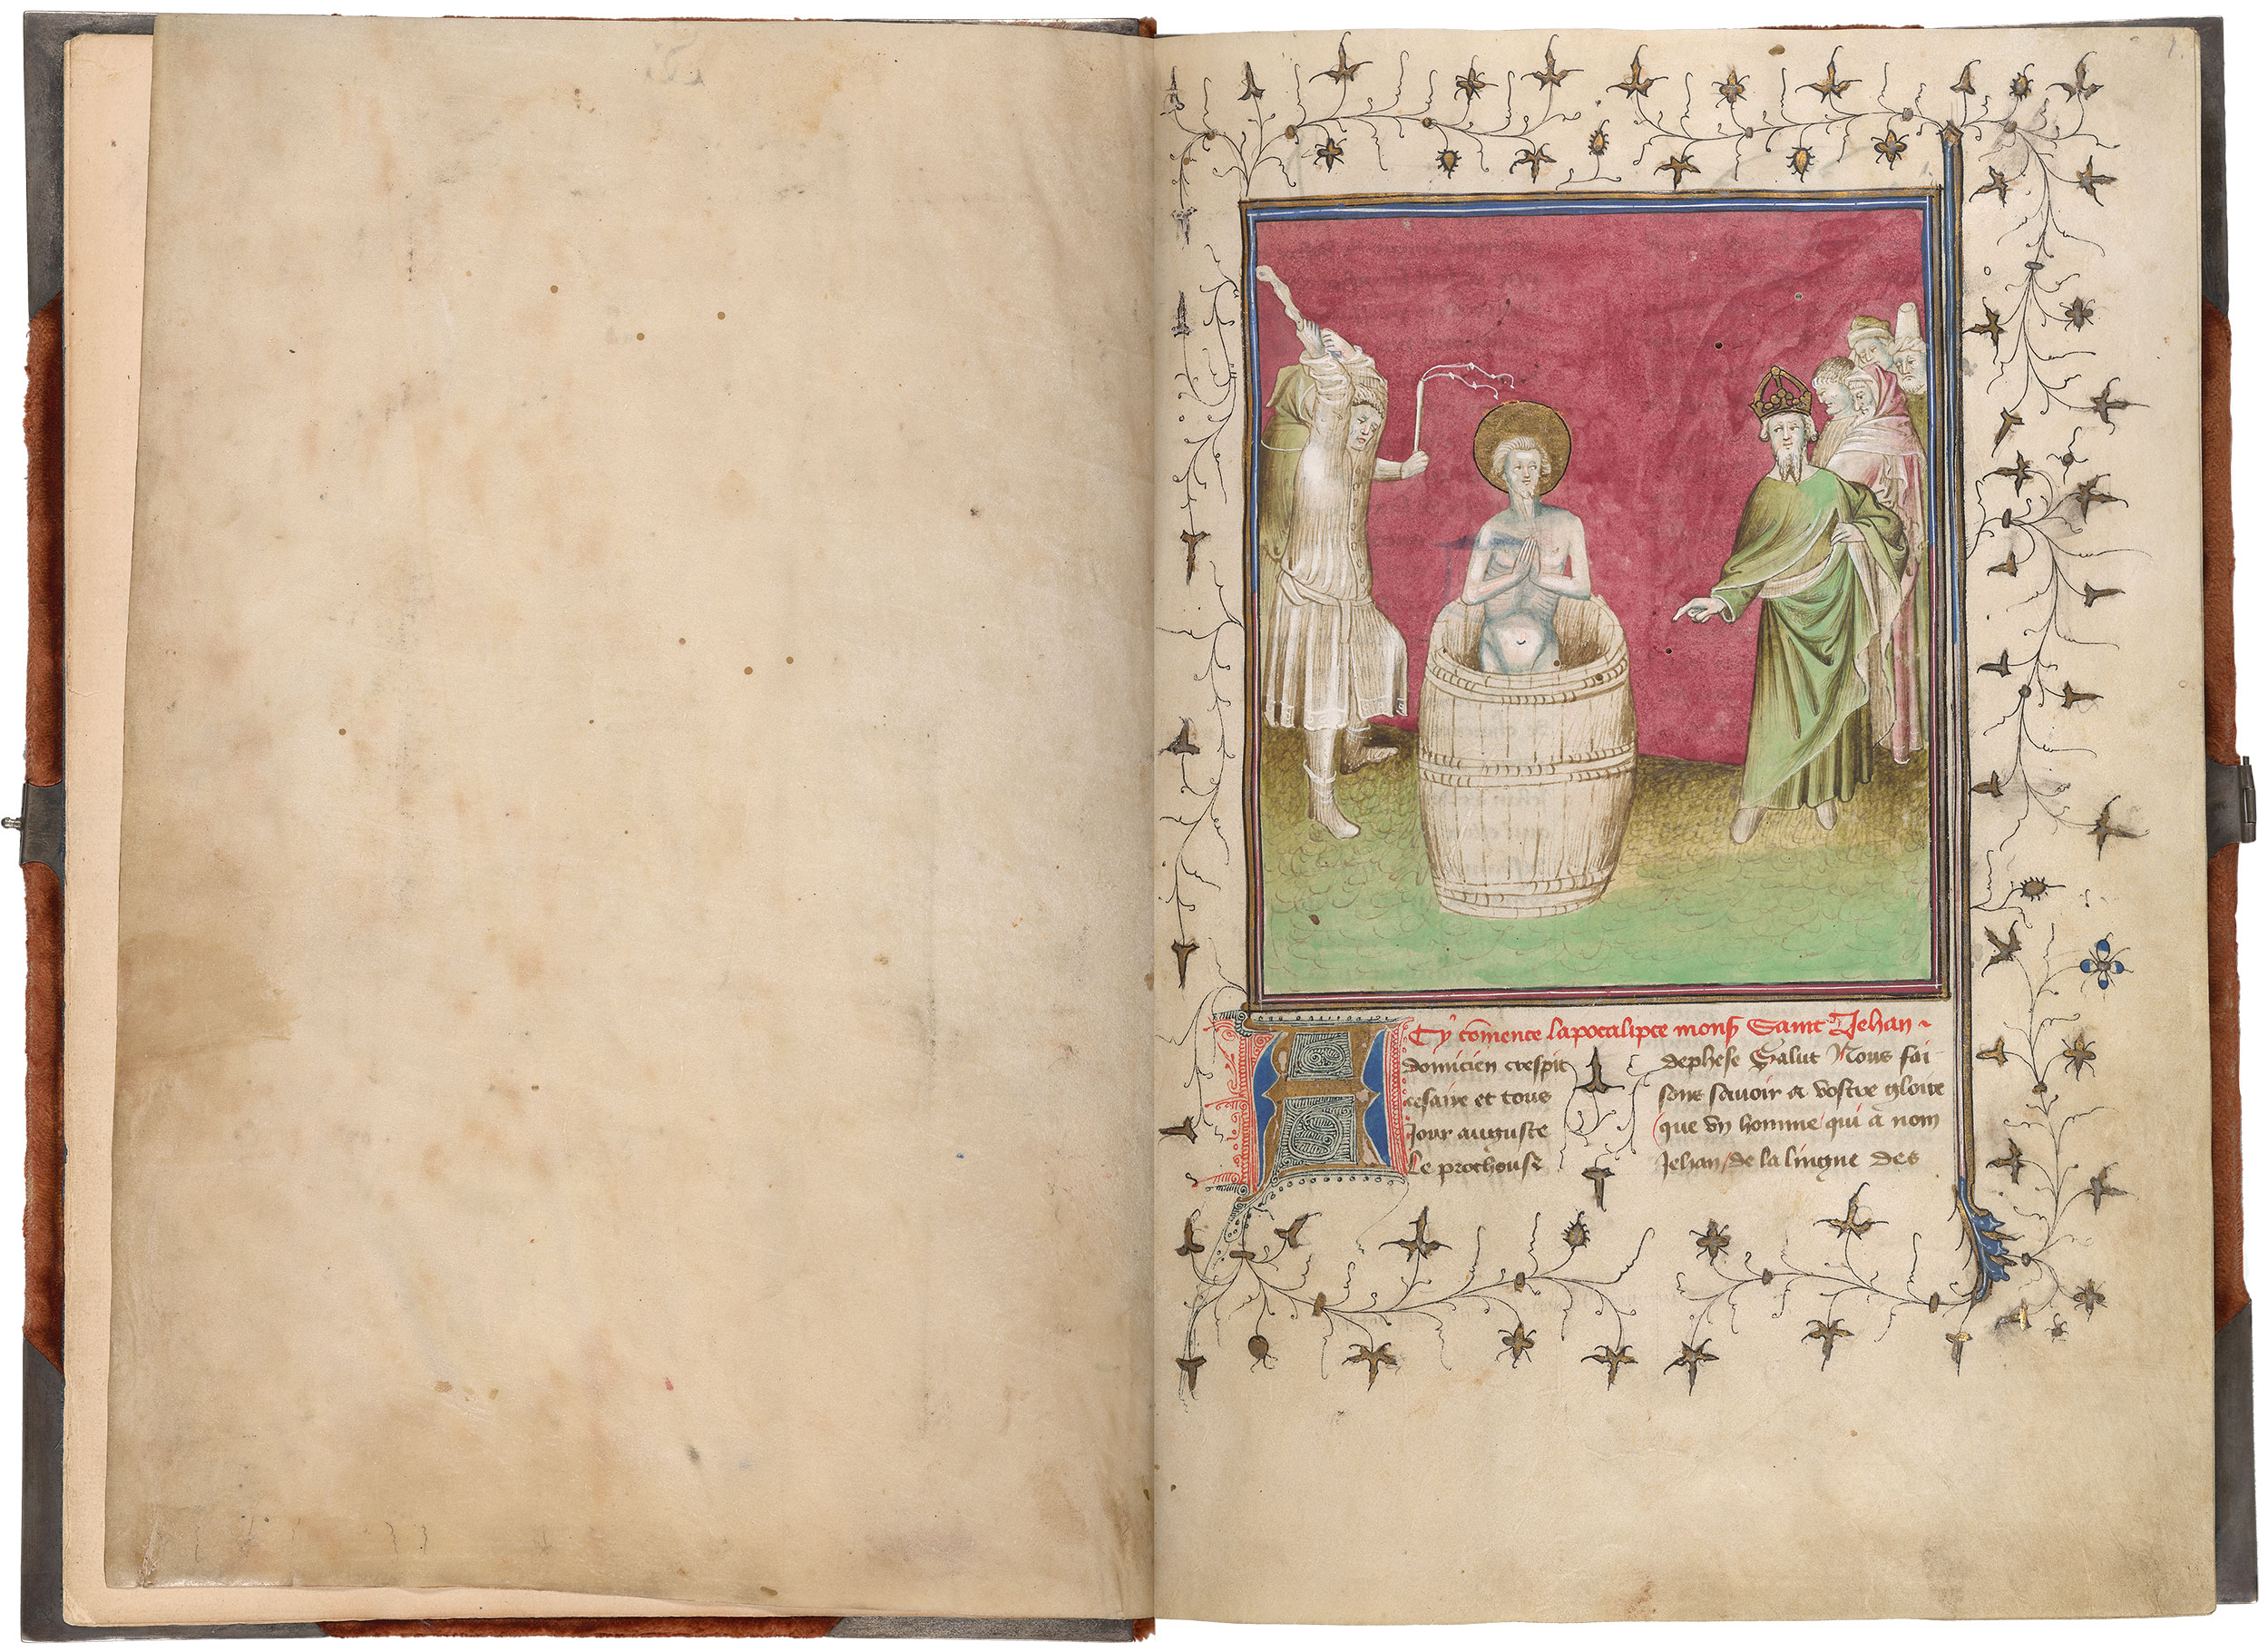 Cy comence lapocalipce mons Saint Jehan
A domicien trespit
cesaire et tous
Jour auguste
Le prochouse
dephese Salut Nous fai
sons sauoir a vostre gloire
que vn homme / qui a nom
Jehan / de la lingne des